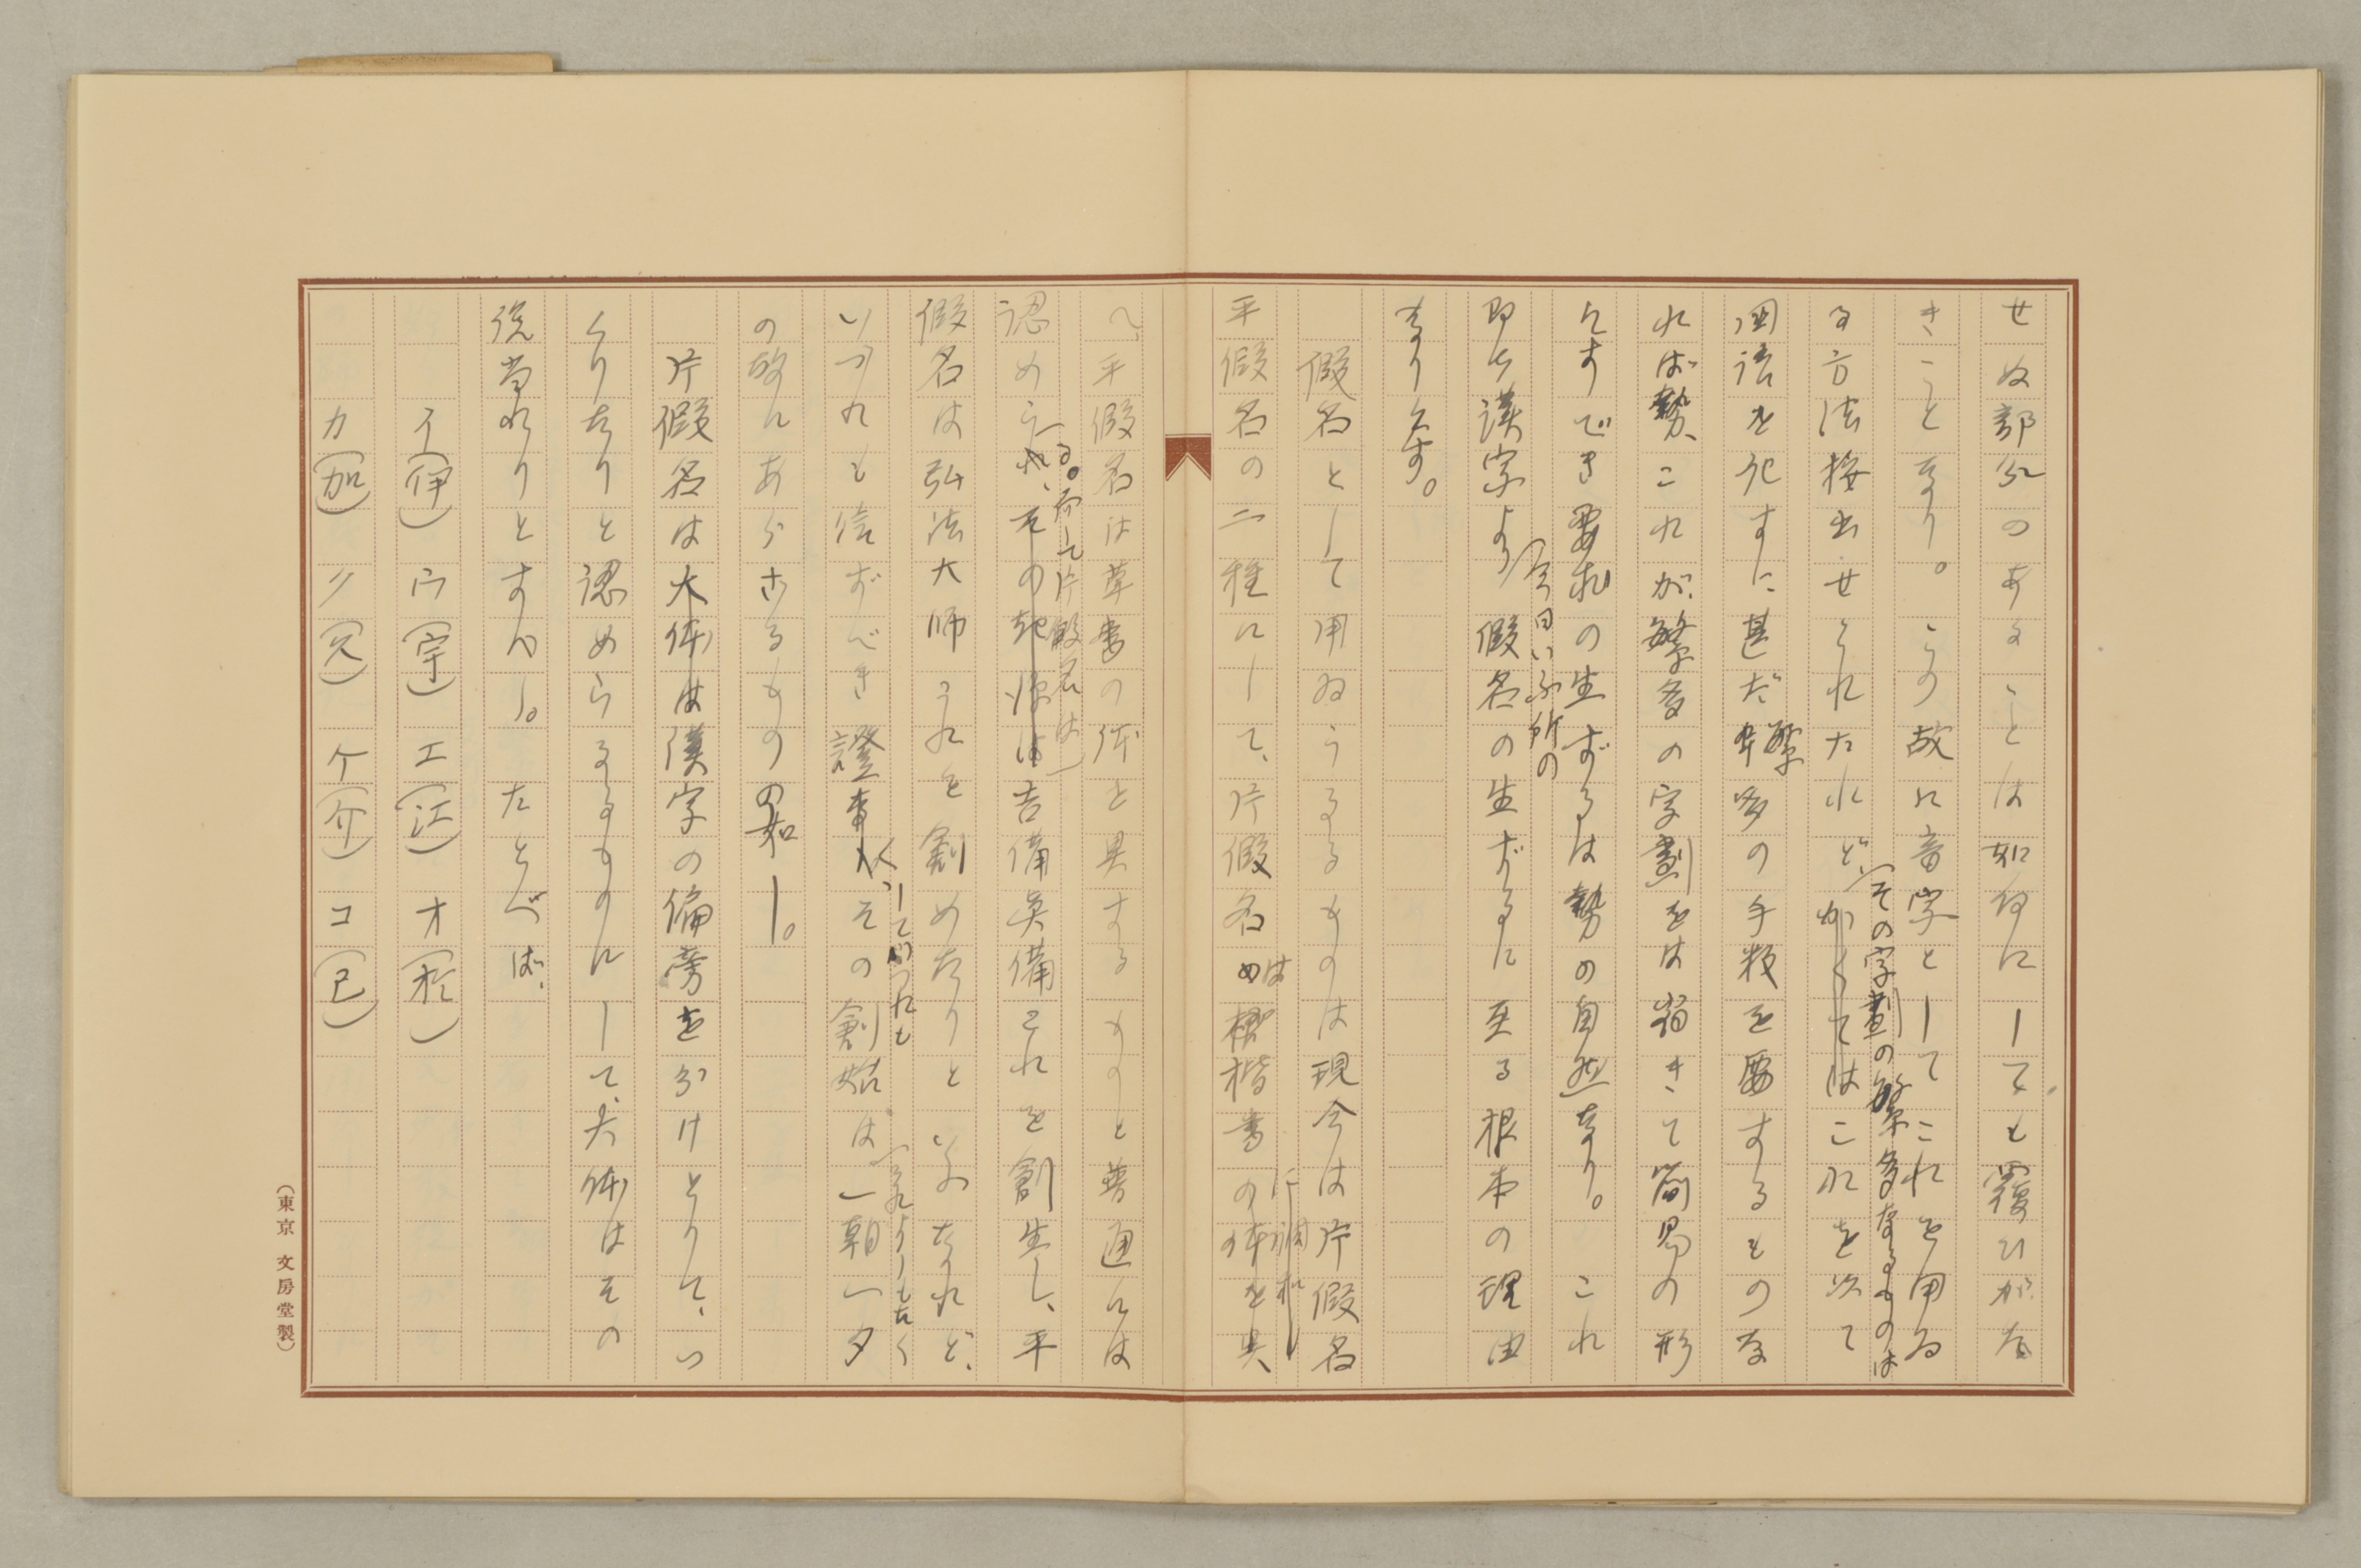 せぬ部分のあることは如何にしても覆ひがた
きことなり。この故に音字としてこれを用ゐ
る方法按出せられたれど、かくてはこれを以て
(その字劃の繁多なるものは
国語を記すに甚だ多の手数を要するものな
繁
れば勢、これが繁多の字劃をは省きて簡易の形
にすべき要求の生ずるは勢の自然なり。これ
(今日いふ所の
即ち漢字より假名の生ずるに至る根本の理由
なりとす。
假名として用ゐらるるものは現今は片假名
平假名の二種にして、片假名は楷書の体を具
は
に源
へ、平假名は草書の体を具するものと普通には
る。而して片假名は
認められ、その起源は吉備真備これを創生し、平
假名は弘法大師これを創めたりといふなれど、
いづれも信ずべき證事なく、その創始は一朝一夕
くしていづれも
の故にあらざるものの如し。
片假名は大体は漢字の偏旁を分けとりて、つ
くりたりと認めらるるものにして、大体はその
説当れりとすべし。たとへば、
イ(伊) ウ(宇) エ(江) オ(於)
カ(加) ク(久) ケ(介) コ(己)
(東京 文房堂製)